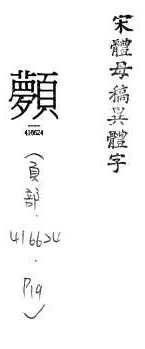 宋體母稿異體字
顭
416624
(頁部.
416624
.
P19)